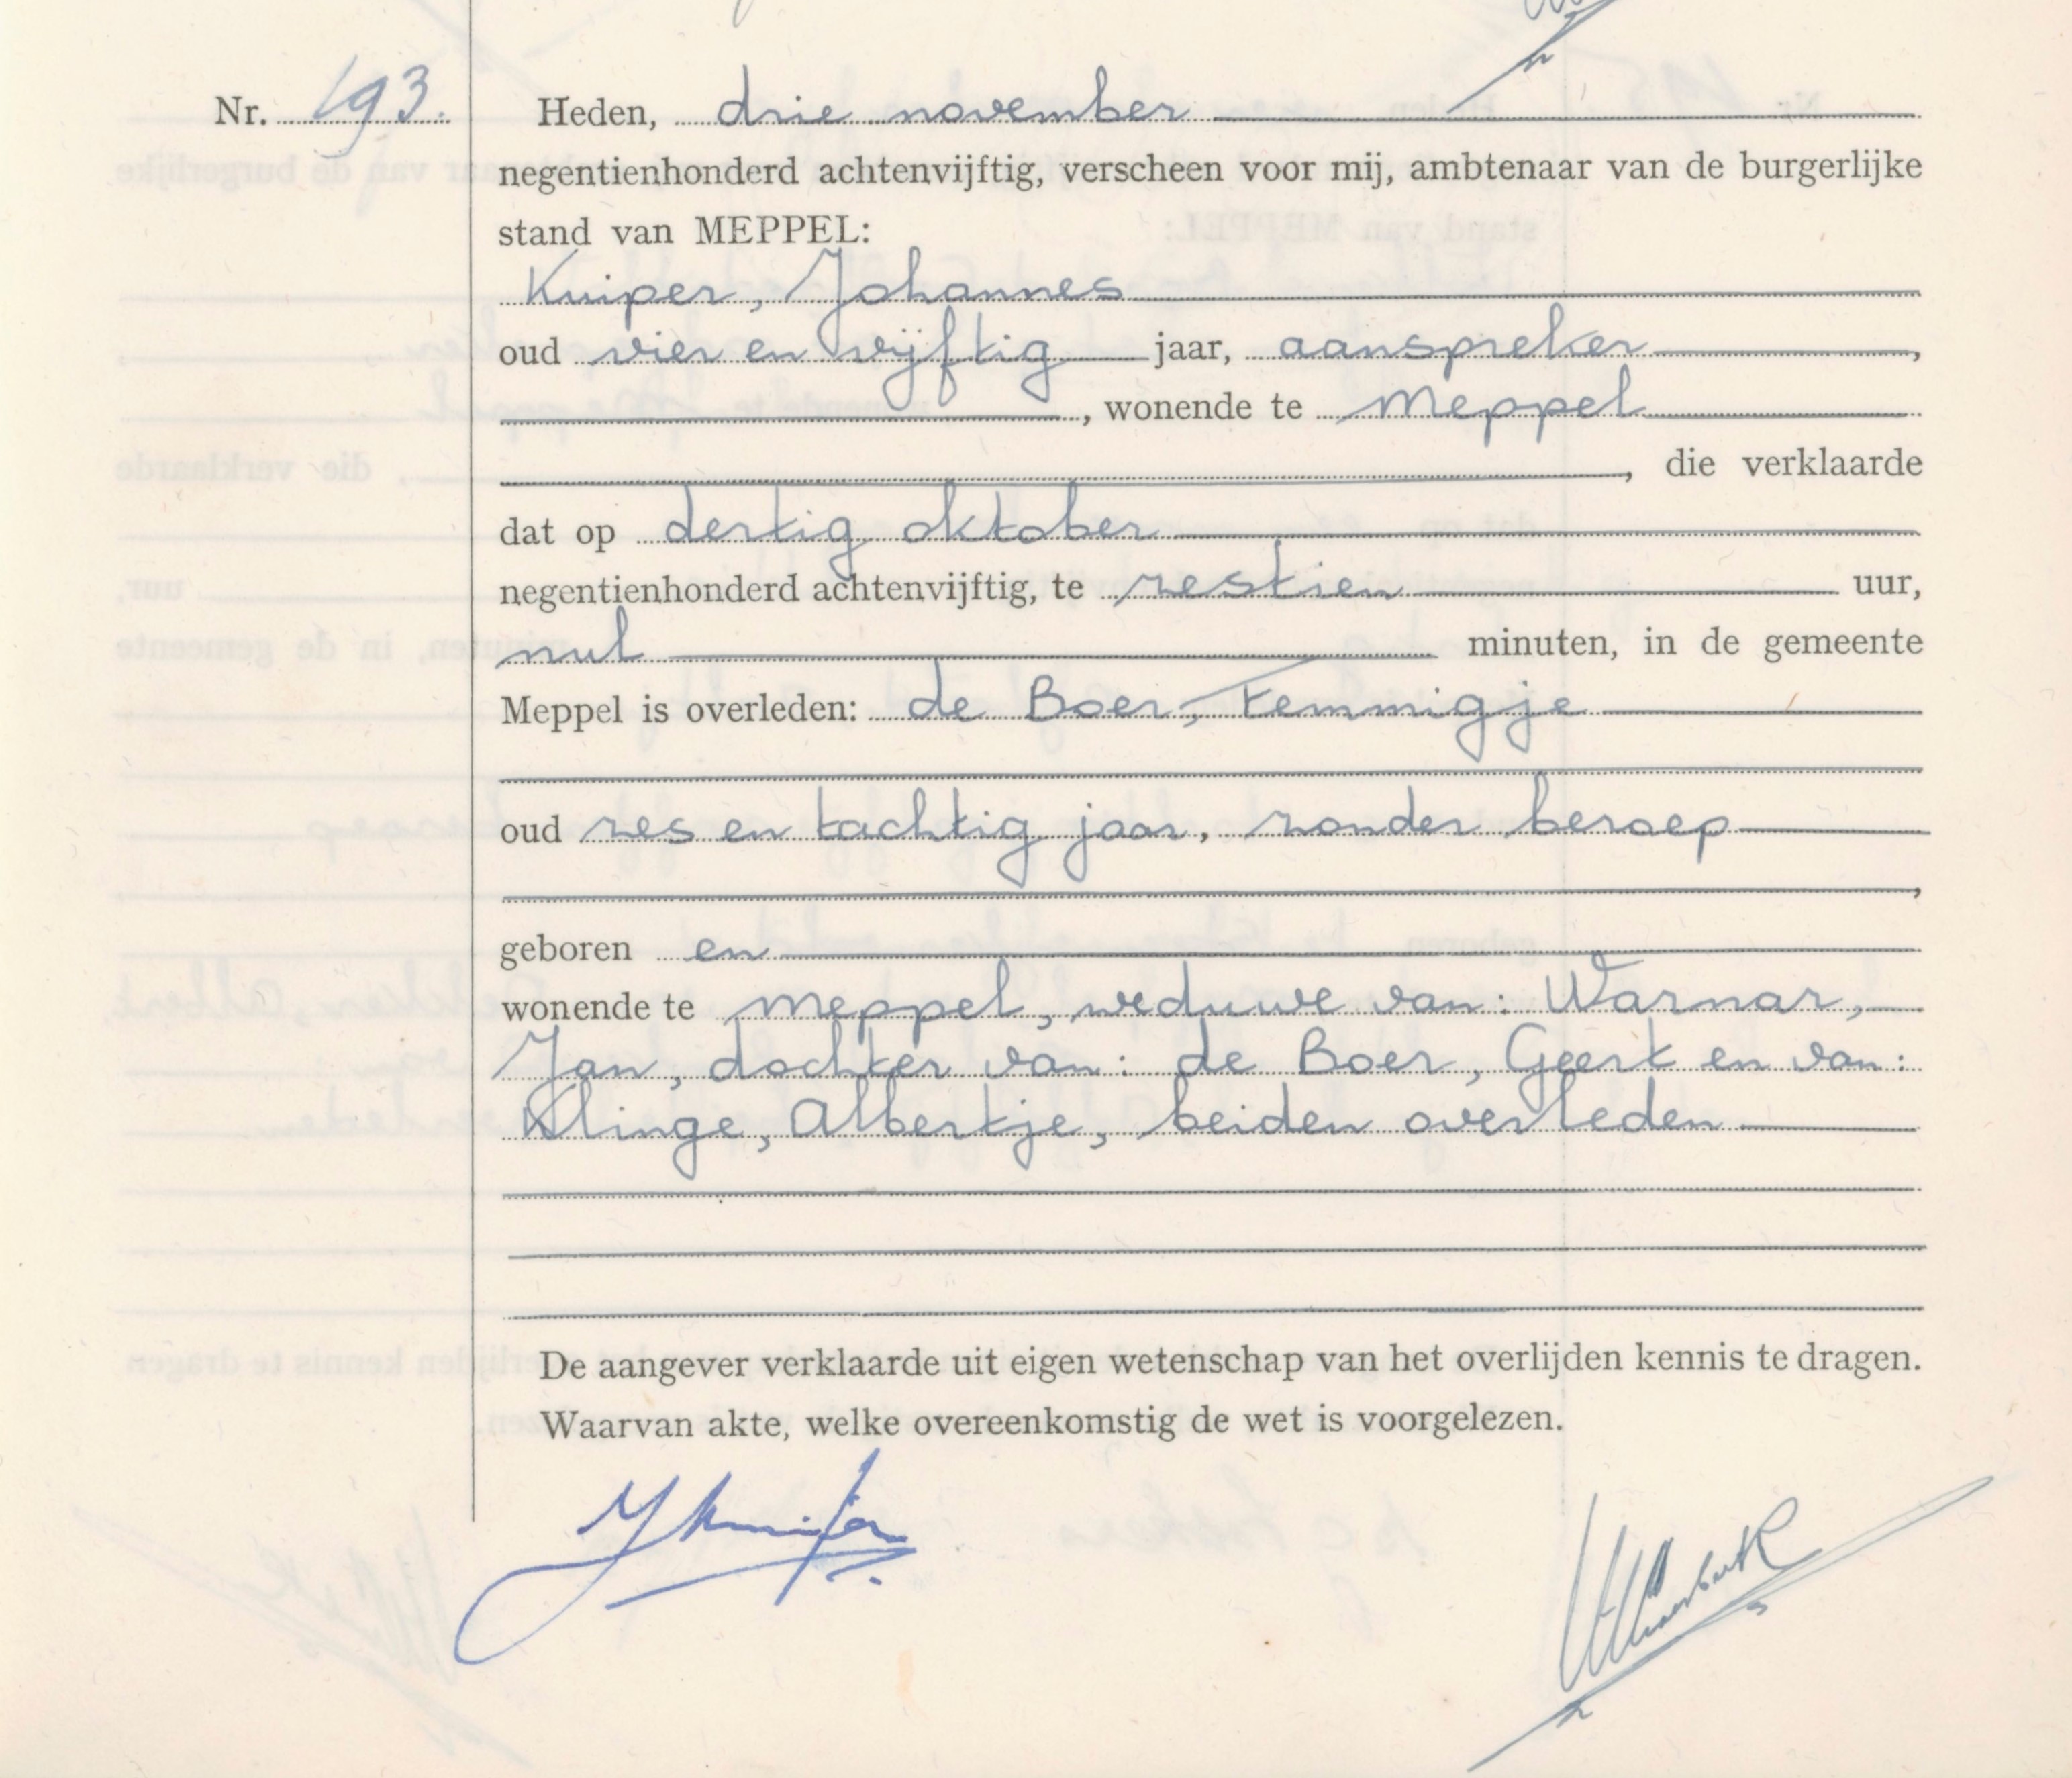 Nr. 193.
Heden, drie november
negentienhonderd achtenvijftig, verscheen voor mij, ambtenaar van de burgerlijke
stand van MEPPEL:
Kuiper, Johannes
oud vier en vijftig jaar, aanspreker,
, wonende te Meppel
, die verklaarde
dat op dertig oktober
negentienhonderd achtenvijftig, te zestien uur,
nul minuten, in de gemeente
Meppel is overleden: de Boer, Temmigje
oud zes en tachtig jaar, zonder beroep
,
geboren en
wonende te Meppel, weduwe van: Warnar,
Jan, dochter van: de Boer, Geert en van:
Klinge, Albertje, beiden overleden
De aangever verklaarde uit eigen wetenschap van het overlijden kennis te dragen.
Waarvan akte, welke overeenkomstig de wet is voorgelezen.
JKuiper